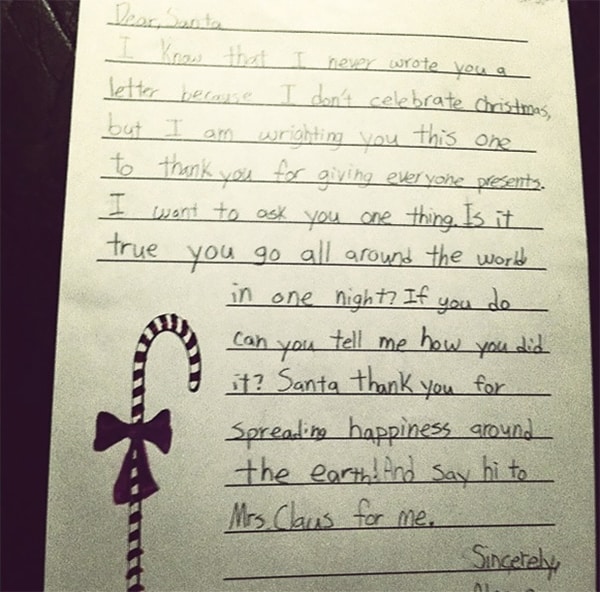 Dear, Santa
I know that I never wrote you a
letter because I don't celebrate christmas,
but I am wrighting you this one
to thank you for giving everyone presents.
I want to ask you one thing. Is it
true you go all around the world
in one night? If you do
can you tell me how you did
it? Santa thank you for
spreading happiness around
the earth! And say hi to
Mrs. Claus for me.
Sincerely,